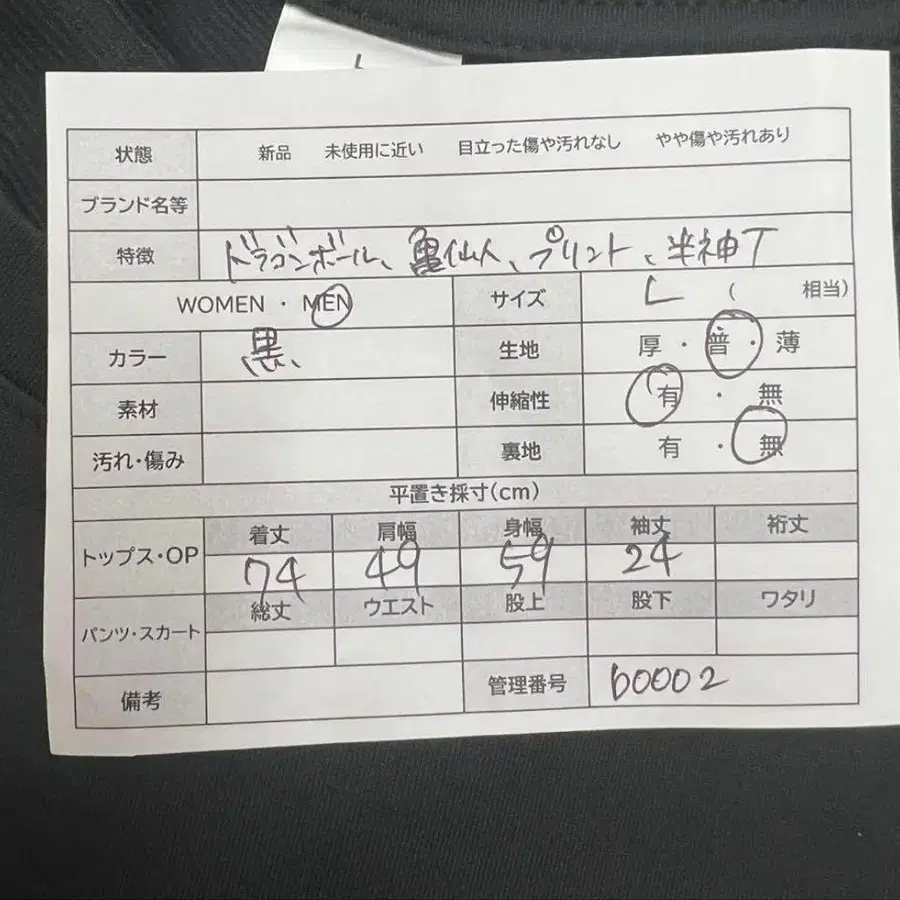 L
状態 新品 未使用に近い 目立った傷や汚れなし やや傷や汚れあり
ブランド名等
特徴 ドラゴンボール、亀仙人、プリント、半神T
WOMEN ・ MEN サイズ L ( 相当)
カラー 黒、 生地 厚 ・ 普 ・ 薄
素材 伸縮性 有 ・ 無
汚れ・傷み 裏地 有 ・ 無
平置き採寸(cm)
トップス・OP 着丈 肩幅 身幅 袖丈 裄丈
74 49 59 24
パンツ・スカート 総丈 ウエスト 股上 股下 ワタリ
備考 管理番号 b0002